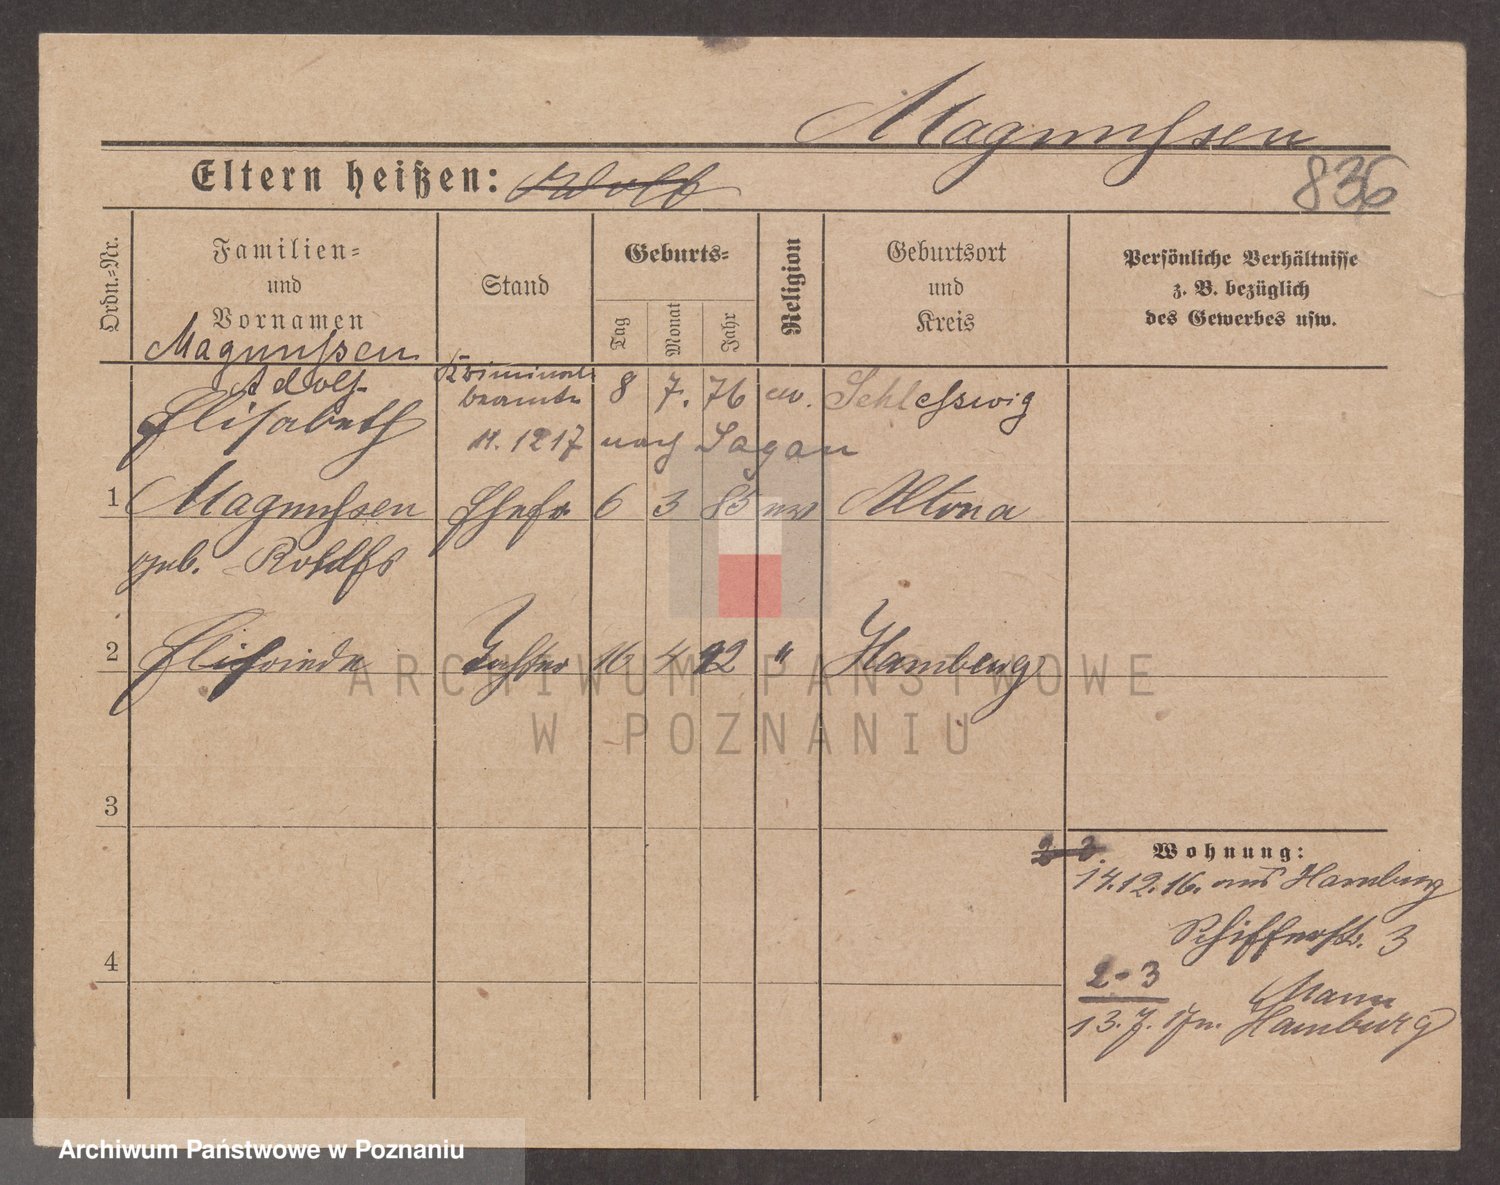 Magnussen
836
Eltern heißen: Adolf
Ordn.=Nr.
Familien=
und
Vornamen
Stand
Geburts=
Tag
Monat
Jahr
Religion
Geburtsort
und
Kreis
Persönliche Verhältnisse
z. B. bezüglich
des Gewerbes usw.
Magnussen
Adolf
Kriminal
beamter
8 7. 76 ev. Schleßwig
Elisabeth
11. 12 17 nach Sagan
1 Magnussen Ehefr 6 3 85 ev Altona
geb. Rohlfs
2 Elfriede Tochter 16 4 12 " Hamburg
3
Wohnung:
2-3.
14.12.16. aus Hamburg
Schifferstr. 3
4
2-3
Mann
13.7.17 n. Hamburg
ARCHIWUM PAŃSTWOWE
W POZNANIU
Archiwum Państwowe w Poznaniu